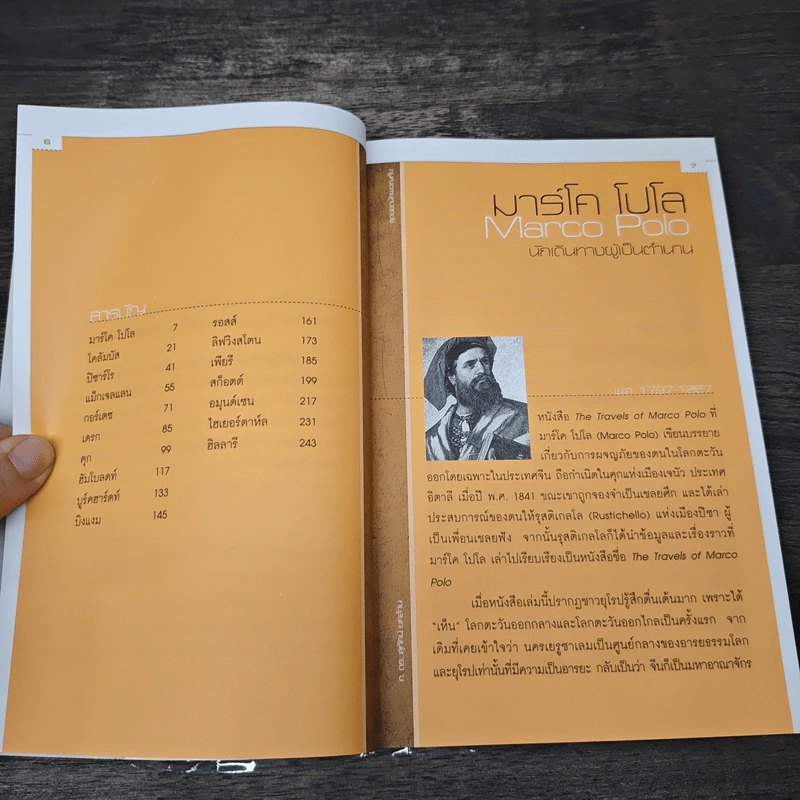 ๖
สารบัญ
มาร์โค โปโล 7
โคลัมบัส 21
ปิซาร์โร 41
แม็กเจลแลน 55
กอร์เตซ 71
เดรก 85
คุก 99
ฮัมโบลดท์ 117
บูร์คฮาร์ดท์ 133
บิงแงม 145
รอสส์ 161
ลิฟวิงสโตน 173
เพียรี 185
สก็อตต์ 199
อมุนด์เซน 217
ไฮเยอร์ดาห์ล 231
ฮิลลารี 243
สุดยอดนักผจญภัย
ศ. ดร. สุทัศน์ ยกส้าน
๗
มาร์โค โปโล
Marco Polo
นักเดินทางผู้เป็นตำนาน
พ.ศ. 1797-1867
หนังสือ The Travels of Marco Polo ที่
มาร์โค โปโล (Marco Polo) เขียนบรรยาย
เกี่ยวกับการผจญภัยของตนในโลกตะวัน
ออกโดยเฉพาะในประเทศจีน ถือกำเนิดในคุกแห่งเมืองเจนัว ประเทศ
อิตาลี เมื่อปี พ.ศ. 1841 ขณะเขาถูกจองจำเป็นเชลยศึก และได้เล่า
ประสบการณ์ของตนให้รุสติเกลโล (Rustichello) แห่งเมืองปิซา ผู้
เป็นเพื่อนเชลยฟัง จากนั้นรุสติเกลโลก็ได้นำข้อมูลและเรื่องราวที่
มาร์โค โปโล เล่าไปเรียบเรียงเป็นหนังสือชื่อ The Travels of Marco
Polo
เมื่อหนังสือเล่มนี้ปรากฏชาวยุโรปรู้สึกตื่นเต้นมาก เพราะได้
“เห็น” โลกตะวันออกกลางและโลกตะวันออกไกลเป็นครั้งแรก จาก
เดิมที่เคยเข้าใจว่า นครเยรูซาเลมเป็นศูนย์กลางของอารยธรรมโลก
และยุโรปเท่านั้นที่มีความเป็นอารยะ กลับเป็นว่า จีนก็เป็นมหาอาณาจักร